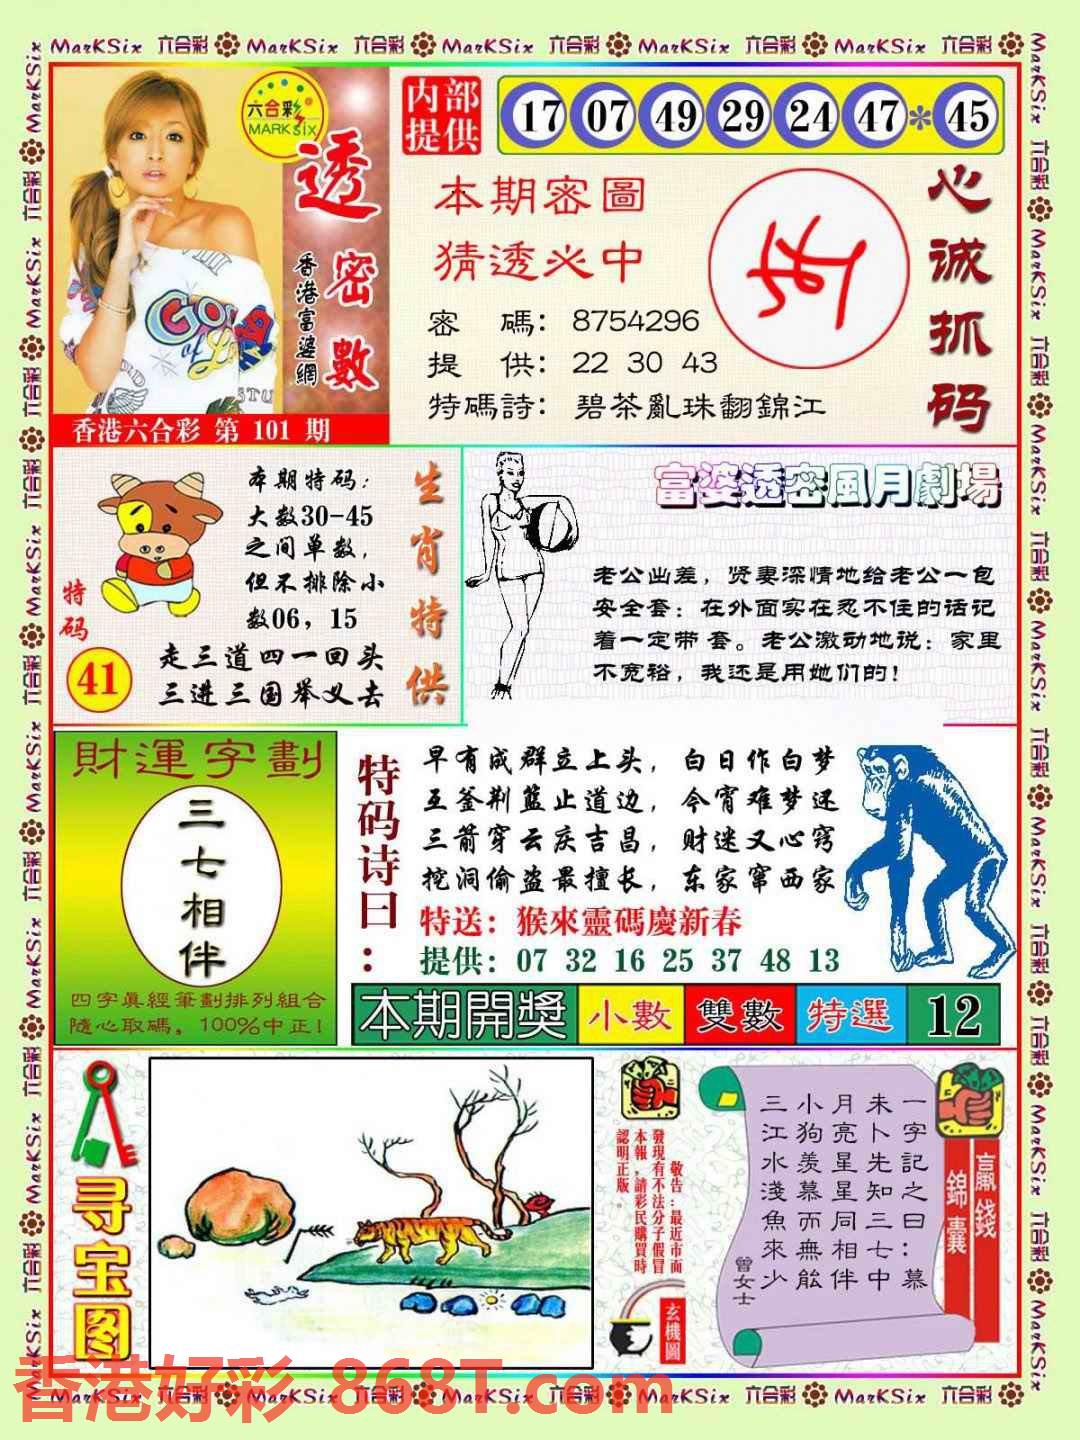 MarKSix 六合彩 MarKSix 六合彩 MarKSix 六合彩 MarKSix 六合彩 MarKSix 六合彩
六合彩
MARK SIX
透密數
香港富婆網
香港六合彩 第 101 期
内部提供
17 07 49 29 24 47 * 45
本期密圖
猜透必中
密 碼: 8754296
提 供: 22 30 43
特碼詩: 碧茶亂珠翻錦江
心诚抓码
本期特码:
大数30-45
之间单数,
但不排除小
数06, 15
特码
41
走三道四一回头
三进三国举义去
生肖特供
富婆透密風月劇場
老公出差, 贤妻深情地给老公一包
安全套: 在外面实在忍不住的话记
着一定带 套。老公激动地说: 家里
不宽裕, 我还是用她们的!
財運字劃
三七相伴
四字眞經筆劃排列組合
隨心取碼。100%中正!
特码诗曰:
早有成群立上头, 白日作白梦
互釜荆篮止道边, 今宵难梦还
三箭穿云庆吉昌, 财迷又心窍
挖洞偷盗最擅长, 东家窜西家
特送: 猴來靈碼慶新春
提供: 07 32 16 25 37 48 13
本期開獎 小數 雙數 特選 12
寻宝图
敬告:最近市面
發現有不法分子假冒
本報,請彩民購買時
認明正版。
玄機圖
贏錢
錦囊
一字記之曰:慕
未卜先知三七中
月亮星星同相伴
小狗羡慕而無能
三江水淺魚來少
曾女士
香港好彩 868T.com
MarKSix 六合彩 MarKSix 六合彩 MarKSix 六合彩 MarKSix 六合彩 MarKSix 六合彩